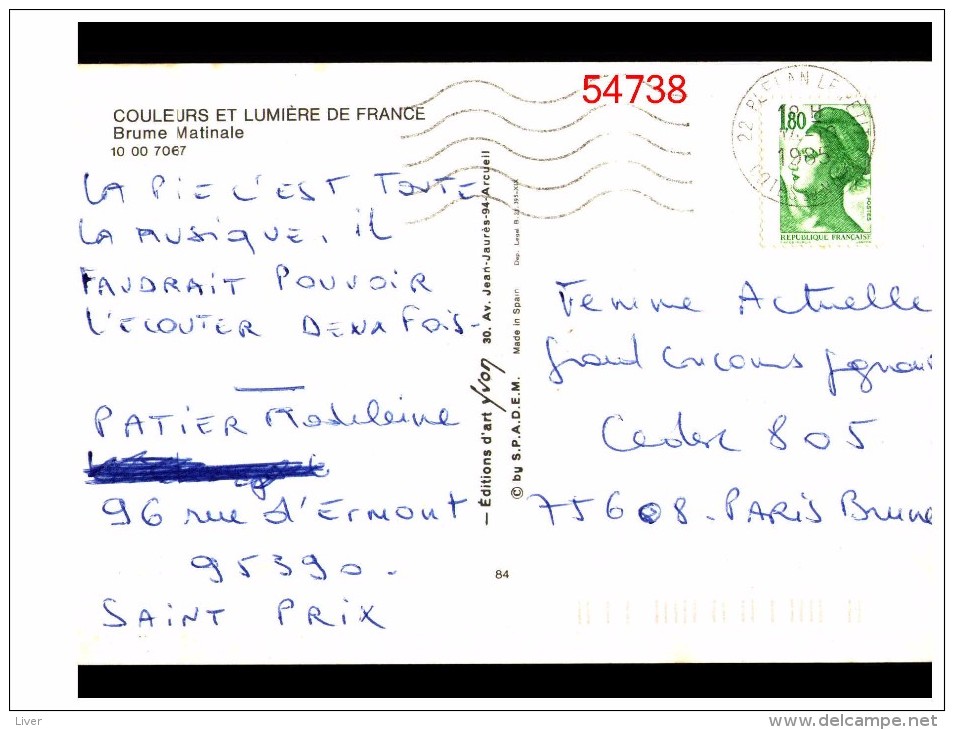 54738
COULEURS ET LUMIÈRE DE FRANCE
Brume Matinale
10 00 7067
LA PIE C'EST TOUTE
LA MUSIQUE. IL
FAUDRAIT POUVOIR
L'ECOUTER DEUX FOIS-
PATIER Madeleine
96 rue d'Ermont
95390.
SAINT PRIX
Éditions d'art Yvon 30. Av. Jean-Jaurès-94-Arcueil
© by S.P.A.D.E.M. Made in Spain
84
22 PLELAN LE PETIT
1,80
POSTES
REPUBLIQUE FRANÇAISE
Femme Actuelle
grand concours
Cedex 805
75608 - PARIS Brune
Liver
delcampe.net